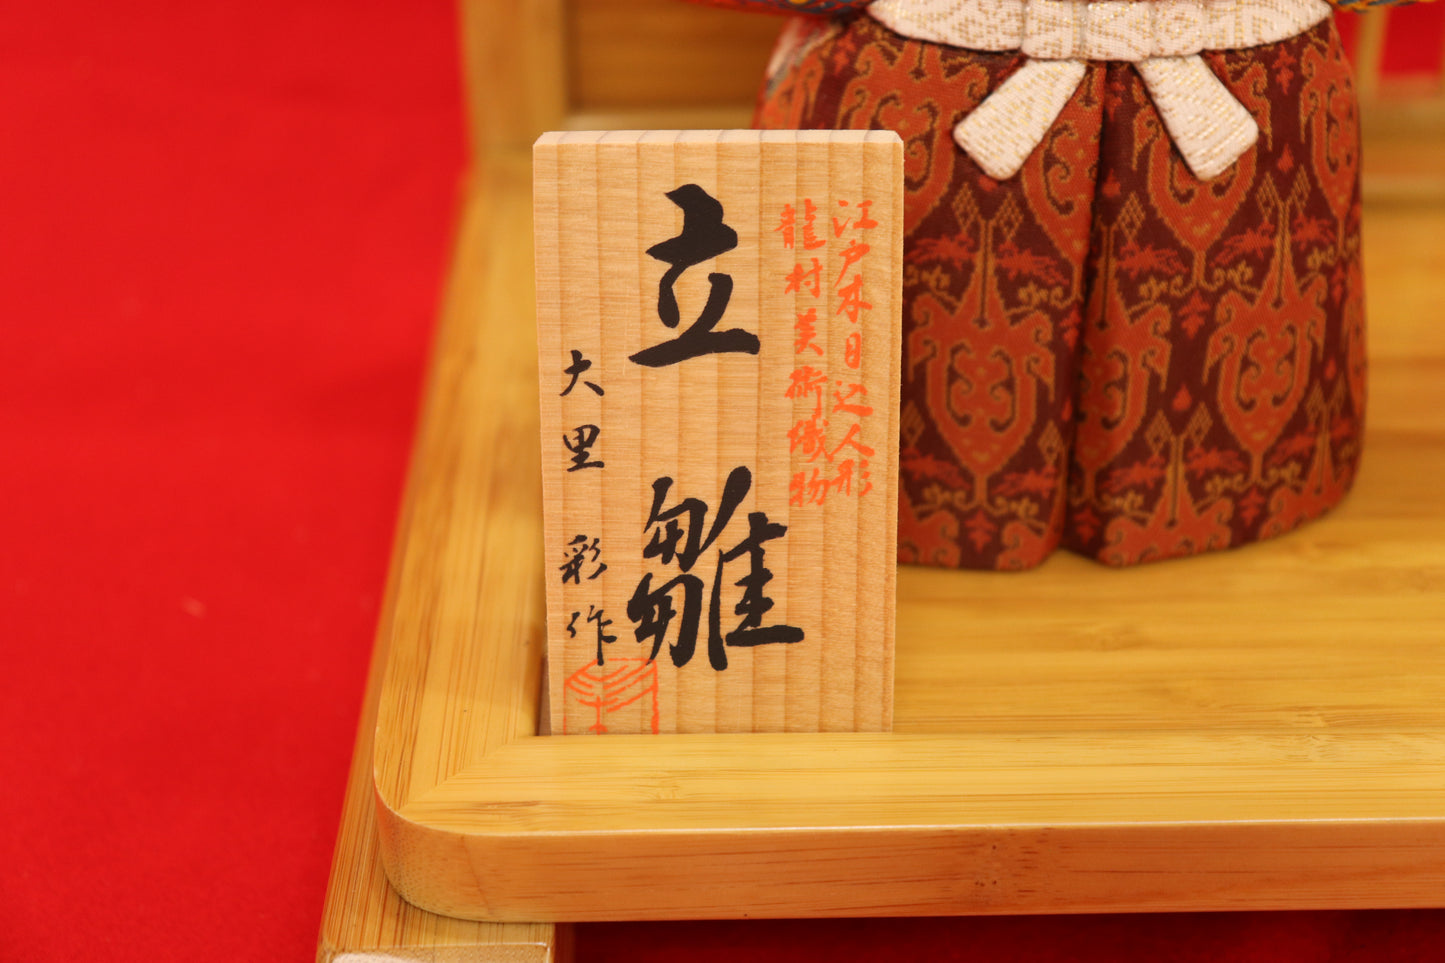 江戸木目込人形
龍村美術織物
立雛
大里彩作